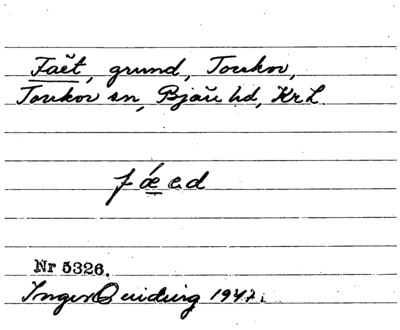 Fäet, grund, Torekov,
Torekov sn, Bjäre hd, Kr L.
f ǽ e d
Nr 5326.
Inger Quiding 1947.